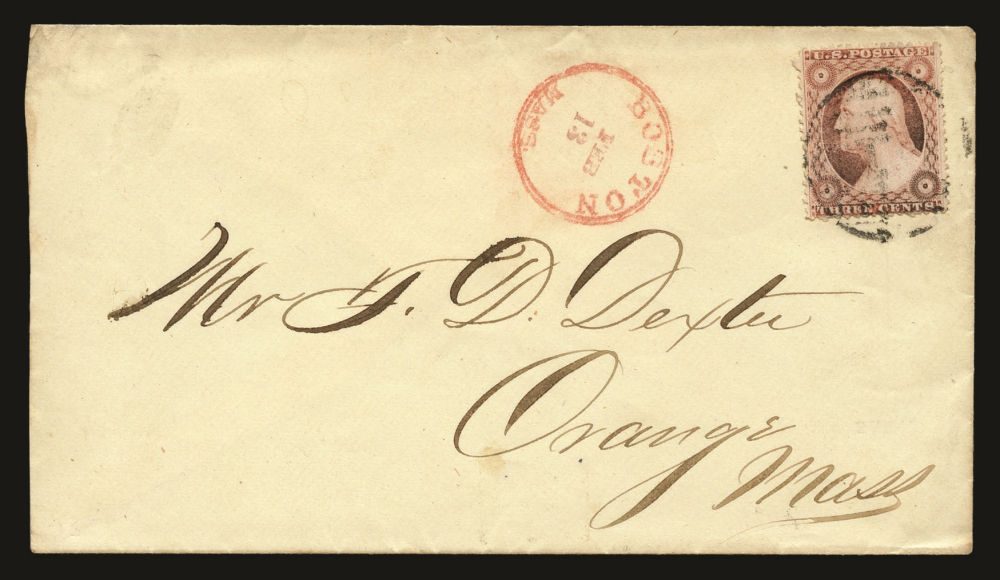 U.S. POSTAGE
THREE CENTS
BOSTON
FEB
13
MASS
Mr F. D. Dexter
Orange
Mass